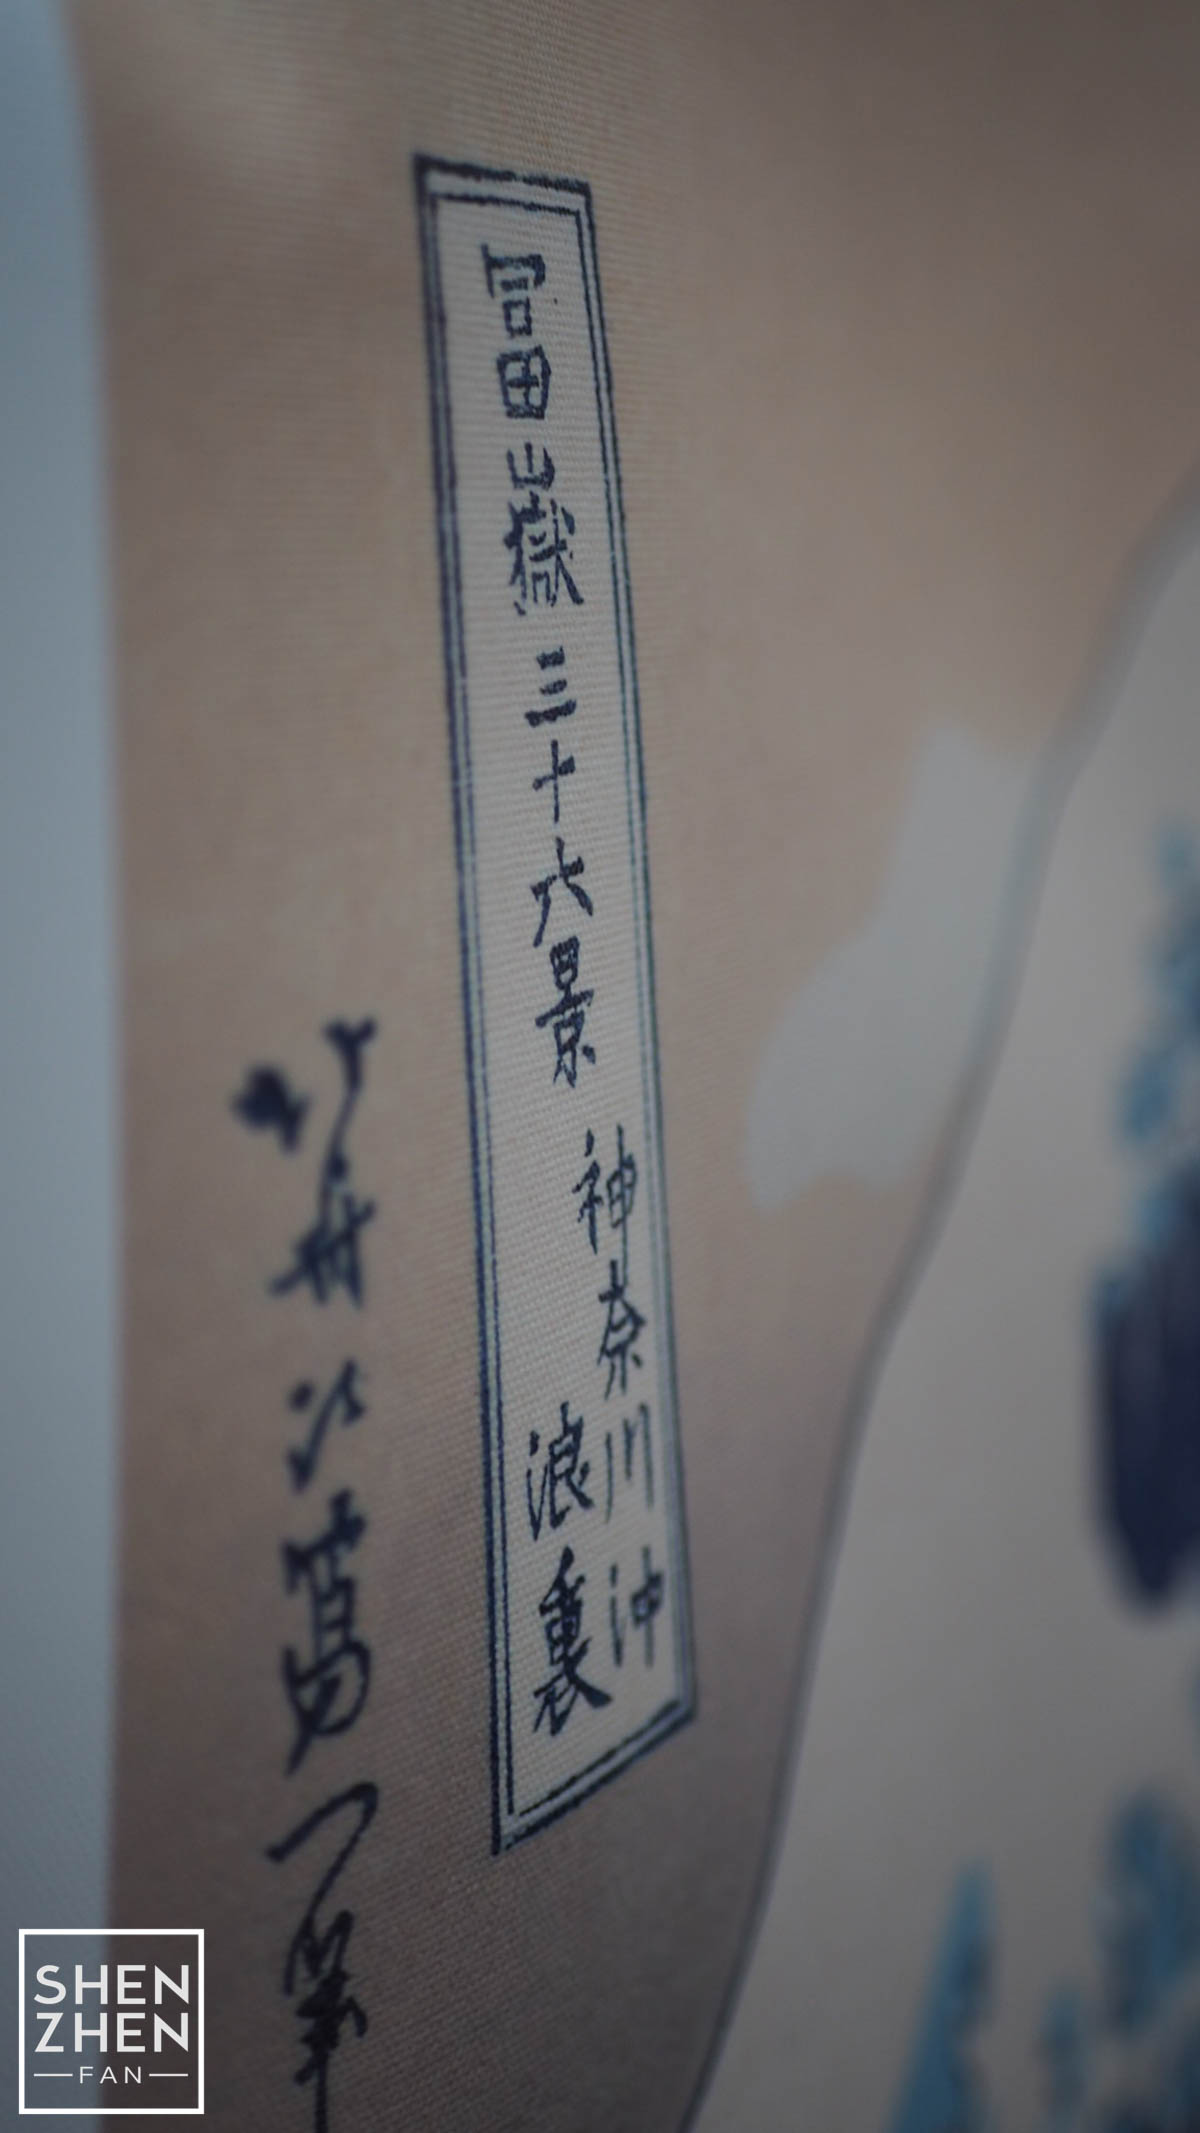 冨嶽三十六景
神奈川沖
浪裏
北斎改為一筆
SHEN
ZHEN
FAN